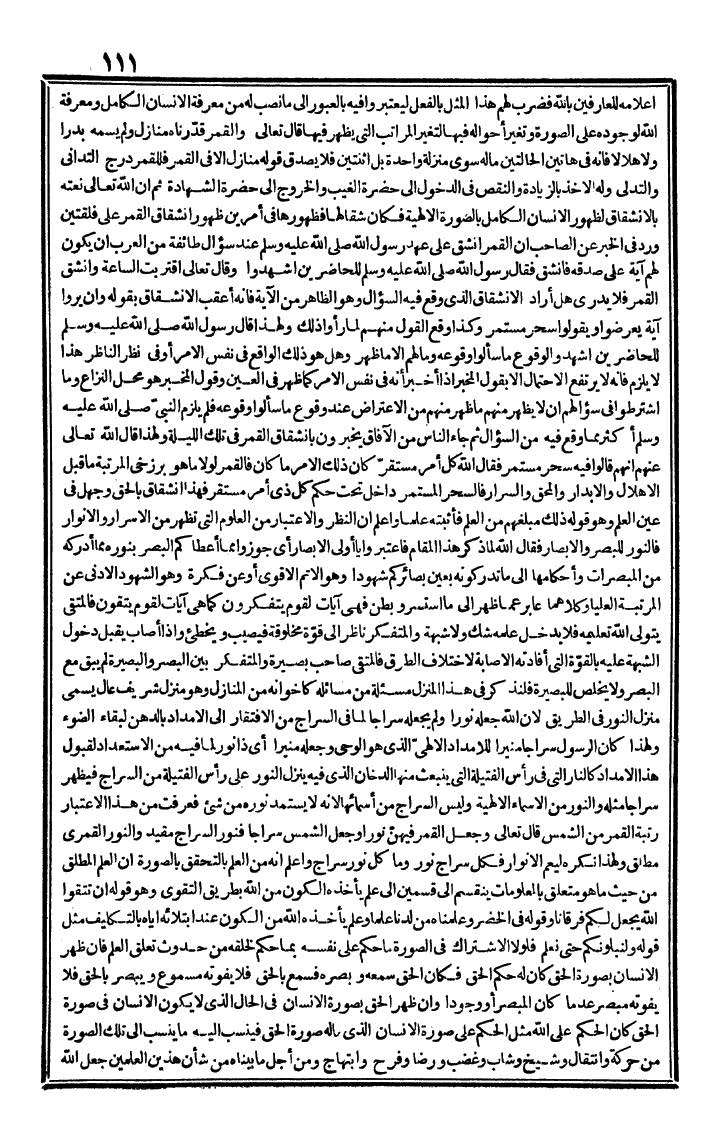 ١١١
اعلامه للعارفين بالله فضرب لهم هذا المثل بالفعل ليعتبروا فيه بالعبور الى ما نصب له من معرفة الانسان الكامل ومعرفة
الله لوجوده على الصورة وتغير أحواله فيها لتغير المراتب التى يظهر فيها قال تعالى والقمر قدّرناه منازل ولم يسمه بدرا
ولا هلالا فانه فى هاتين الحالتين ماله سوى منزلة واحدة بل اثنتين فلا يصدق قوله منازل الا فى القمر فللقمر درج التدانى
والتدلى وله الاخذ بالزيادة والنقص فى الدخول الى حضرة الغيب والخروج الى حضرة الشهادة ثم ان الله تعالى نعته
بالانشقاق لظهور الانسان الكامل بالصورة الالهية فكان شقا لها فظهورها فى أمرين ظهور انشقاق القمر على فلقتين
ورد فى الخبر عن الصاحب ان القمر انشق على عهد رسول الله صلى الله عليه وسلم عند سؤال طائفة من العرب ان يكون
لهم آية على صدقه فانشق فقال رسول الله صلى الله عليه وسلم للحاضرين اشهدوا وقال تعالى اقتربت الساعة وانشق
القمر فلا يدرى هل أراد الانشقاق الذى وقع فيه السؤال وهو الظاهر من الآية فانه أعقب الانشقاق بقوله وان يروا
آية يعرضوا ويقولوا سحر مستمر وكذا وقع القول منهم لما رأوا ذلك ولهذا قال رسول الله صلى الله عليه وسلم
للحاضرين اشهدوا لوقوع ما سألوا وقوعه وما لهم الا ما ظهر وهل هو ذلك الواقع فى نفس الامر أو فى نظر الناظر هذا
لا يلزم فانه لا يرتفع الاحتمال الا بقول المخبر اذا أخبر أنه فى نفس الامر كما ظهر فى العين وقول المخبر هو محل النزاع وما
اشترطوا فى سؤالهم ان لا يظهر منهم ما ظهر منهم من الاعتراض عند وقوع ما سألوا وقوعه فلم يلزم النبىّ صلى الله عليه
وسلم أكثر مما وقع فيه من السؤال ثم جاء الناس من الآفاق يخبرون بانشقاق القمر فى تلك الليلة ولهذا قال الله تعالى
عنهم انهم قالوا فيه سحر مستمر فقال الله كل أمر مستقرّ كان ذلك الامر ما كان فالقمر لولا ما هو برزخى المرتبة ما قبل
الاهلال والابدار والمحق والسرار فالسحر المستمر داخل تحت حكم كل ذى أمر مستقر فهذا انشقاق بالحق وجهل فى
عين العلم وهو قوله ذلك مبلغهم من العلم فأثبته علما واعلم ان النظر والاعتبار من العلوم التى تظهر من الاسرار والانوار
فالنور للبصر والابصار فقال الله لما ذكر هذا المقام فاعتبروا يا أولى الابصار أى جوزوا مما أعطاكم البصر بنوره مما أدركه
من المبصرات وأحكامها الى ما تدركونه بعين بصائركم شهودا وهو الاتم الاقوى أو عن فكرة وهو الشهود الادنى عن
المرتبة العليا وكلاهما عابر عما ظهر الى ما استسر وبطن فهى آيات لقوم يتفكرون كما هى آيات لقوم يتقون فالمتقى
يتولى الله تعليمه فلا يدخل علمه شك ولا شبهة والمتفكر ناظر الى قوّة مخلوقة فيصيب ويخطئ واذا أصاب يقبل دخول
الشبهة عليه بالقوّة التى أفادته الاصابة لاختلاف الطرق فالمتقى صاحب بصيرة والمتفكر بين البصر والبصيرة لم يبق مع
البصر ولا يخلص للبصيرة فلنذكر فى هذا المنزل مسئلة من مسائله كاخوانه من المنازل وهو منزل شريف عال يسمى
منزل النور فى الطريق لان الله جعله نورا ولم يجعله سراجا لما فى السراج من الافتقار الى الامداد بالدهن لبقاء الضوء
ولهذا كان الرسول سراجا منيرا للامداد الالهىّ الذى هو الوحى وجعله منيرا أى ذا نور لما فيه من الاستعداد لقبول
هذا الامداد كالنار التى فى رأس الفتيلة التى ينبعث منها الدخان الذى فيه ينزل النور على رأس الفتيلة من السراج فيظهر
سراجا مثله والنور من الاسماء الالهية وليس السراج من أسمائها لانه لا يستمد نوره من شئ فعرفت من هذا الاعتبار
رتبة القمر من الشمس قال تعالى وجعل القمر فيهنّ نورا وجعل الشمس سراجا فنور السراج مقيد والنور القمرى
مطلق ولهذا نكره ليعم الانوار فكل سراج نور وما كل نور سراج واعلم انه من العلم بالتحقق بالصورة ان العلم المطلق
من حيث ما هو متعلق بالمعلومات ينقسم الى قسمين الى علم يأخذه الكون من الله بطريق التقوى وهو قوله ان تتقوا
الله يجعل لكم فرقانا وقوله فى الخضر وعلمناه من لدنا علما وعلم يأخذه الله من الكون عند ابتلائه اياه بالتكليف مثل
قوله ولنبلونكم حتى نعلم فلولا الاشتراك فى الصورة ما حكم على نفسه بما حكم لخلقه من حدوث تعلق العلم فان ظهر
الانسان بصورة الحق كان له حكم الحق فكان الحق سمعه وبصره فسمع بالحق فلا يفوته مسموع ويبصر بالحق فلا
يفوته مبصر عدما كان المبصر أو وجودا وان ظهر الحق بصورة الانسان فى الحال الذى لا يكون الانسان فى صورة
الحق كان الحكم على الله مثل الحكم على صورة الانسان الذى ماله صورة الحق فينسب اليه ما ينسب الى تلك الصورة
من حركة وانتقال وشيخ وشاب وغضب ورضا وفرح وابتهاج ومن أجل ما بيناه من شأن هذين العلمين جعل الله